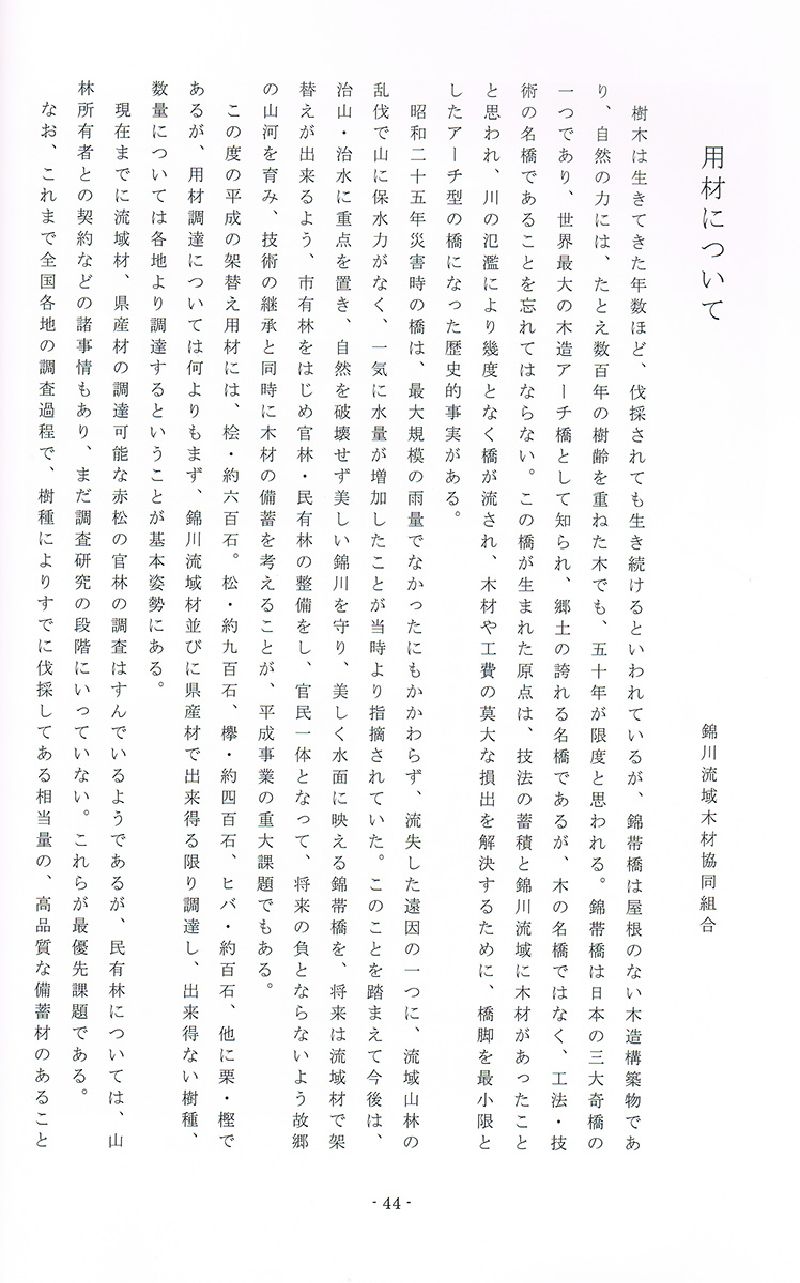 用材について
錦川流域木材協同組合
樹木は生きてきた年数ほど、伐採されても生き続けるといわれているが、錦帯橋は屋根のない木造構築物であ
り、自然の力には、たとえ数百年の樹齢を重ねた木でも、五十年が限度と思われる。錦帯橋は日本の三大奇橋の
一つであり、世界最大の木造アーチ橋として知られ、郷土の誇れる名橋であるが、木の名橋ではなく、工法・技
術の名橋であることを忘れてはならない。この橋が生まれた原点は、技法の蓄積と錦川流域に木材があったこと
と思われ、川の氾濫により幾度となく橋が流され、木材や工費の莫大な損出を解決するために、橋脚を最小限と
したアーチ型の橋になった歴史的事実がある。
昭和二十五年災害時の橋は、最大規模の雨量でなかったにもかかわらず、流失した遠因の一つに、流域山林の
乱伐で山に保水力がなく、一気に水量が増加したことが当時より指摘されていた。このことを踏まえて今後は、
治山・治水に重点を置き、自然を破壊せず美しい錦川を守り、美しく水面に映える錦帯橋を、将来は流域材で架
替えが出来るよう、市有林をはじめ官林・民有林の整備をし、官民一体となって、将来の負とならないよう故郷
の山河を育み、技術の継承と同時に木材の備蓄を考えることが、平成事業の重大課題でもある。
この度の平成の架替え用材には、桧・約六百石。松・約九百石、欅・約四百石、ヒバ・約百石、他に栗・樫で
あるが、用材調達については何よりもまず、錦川流域材並びに県産材で出来得る限り調達し、出来得ない樹種、
数量については各地より調達するということが基本姿勢にある。
現在までに流域材、県産材の調達可能な赤松の官林の調査はすんでいるようであるが、民有林については、山
林所有者との契約などの諸事情もあり、まだ調査研究の段階にいっていない。これらが最優先課題である。
なお、これまで全国各地の調査過程で、樹種によりすでに伐採してある相当量の、高品質な備蓄材のあること
- 44 -